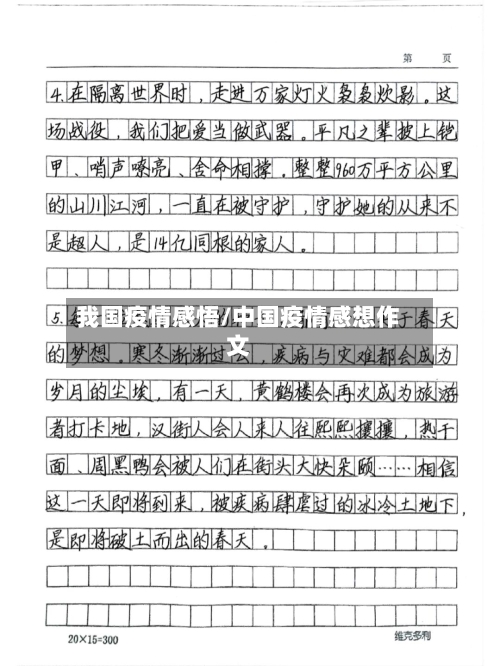 第 页
4.在隔离世界时，走进万家灯火袅袅炊影。这
场战役，我们把爱当做武器。平凡之辈披上铠
甲、哨声嘹亮、舍命相撑。整整960万平方公里
的山川江河，一直在被守护，守护她的从来不
是超人，是14亿同根的家人。
我国疫情感悟/中国疫情感想作
文
5.
于春天
的梦想。寒冬渐渐过去，疾病与灾难都会成为
岁月的尘埃，有一天，黄鹤楼会再次成为旅游
者打卡地，汉街人会人来人往熙熙攘攘，热干
面、周黑鸭会被人们在街头大快朵颐……相信
这一天即将到来，被疾病肆虐过的冰冷土地下，
是即将破土而出的春天。
20×15=300
维克多利